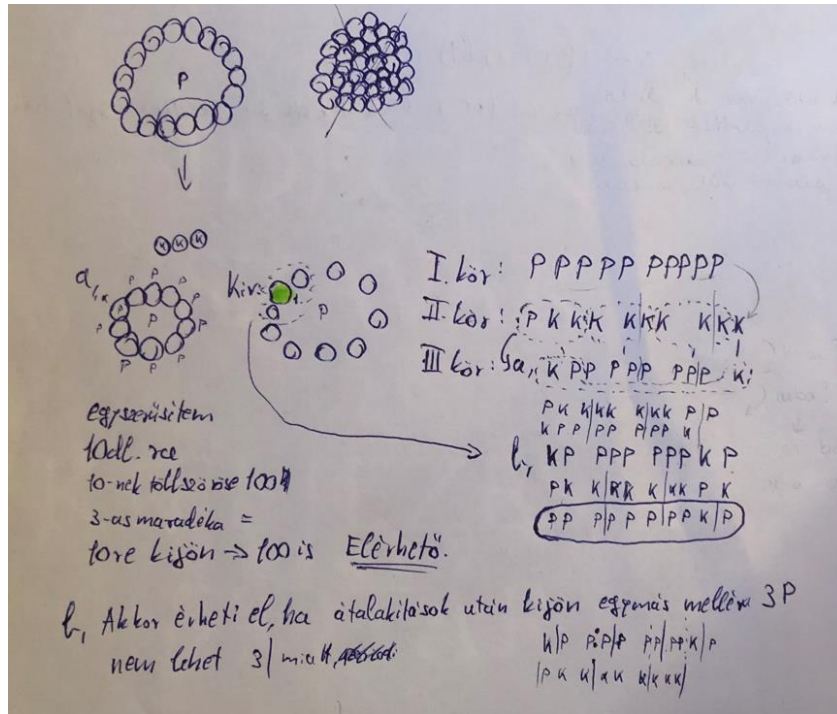 P
K K K
a,
P P P P P P P P P P P
P
Kiv:
P
I. kör: P P P P P P P P P P
II. kör: P K K K K K K K K K
III kör: a, K P P P P P P P P K
P K K K K K K K P P
K P P P P P P P K
b, K P P P P P P P K P
P K K K K K K K P K
P P P P P P P P K P
egyszerűsítem
10 db. ra
10-nek többszöröse 100
3-as maradéka =
10re kijön → 100 is Elérhető.
b, Akkor érheti el, ha átalakítások után kijön egymás mellé 3P
nem lehet 3| miatt
K|P P P|P P P|P P K|P
|P K K|K K K|K K K|